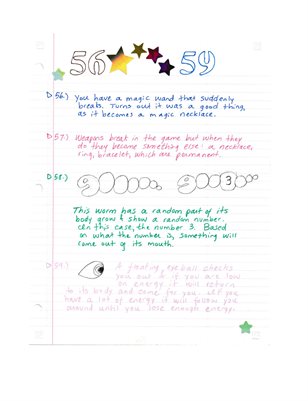 56 59
D 56.) You have a magic wand that suddenly
breaks. Turns out it was a good thing,
as it becomes a magic necklace.
D 57.) Weapons break in the game but when they
do they become something else: a necklace,
ring, bracelet, which are permanent.
D 58.)
3
This worm has a random part of its
body grow & show a random number.
In this case, the number 3. Based
on what the number is, something will
come out of its mouth.
D 59.) A floating eyeball checks
you out & if you are low
on energy it will return
to its body and come for you. If you
have a lot of energy it will follow you
around until you lose enough energy.